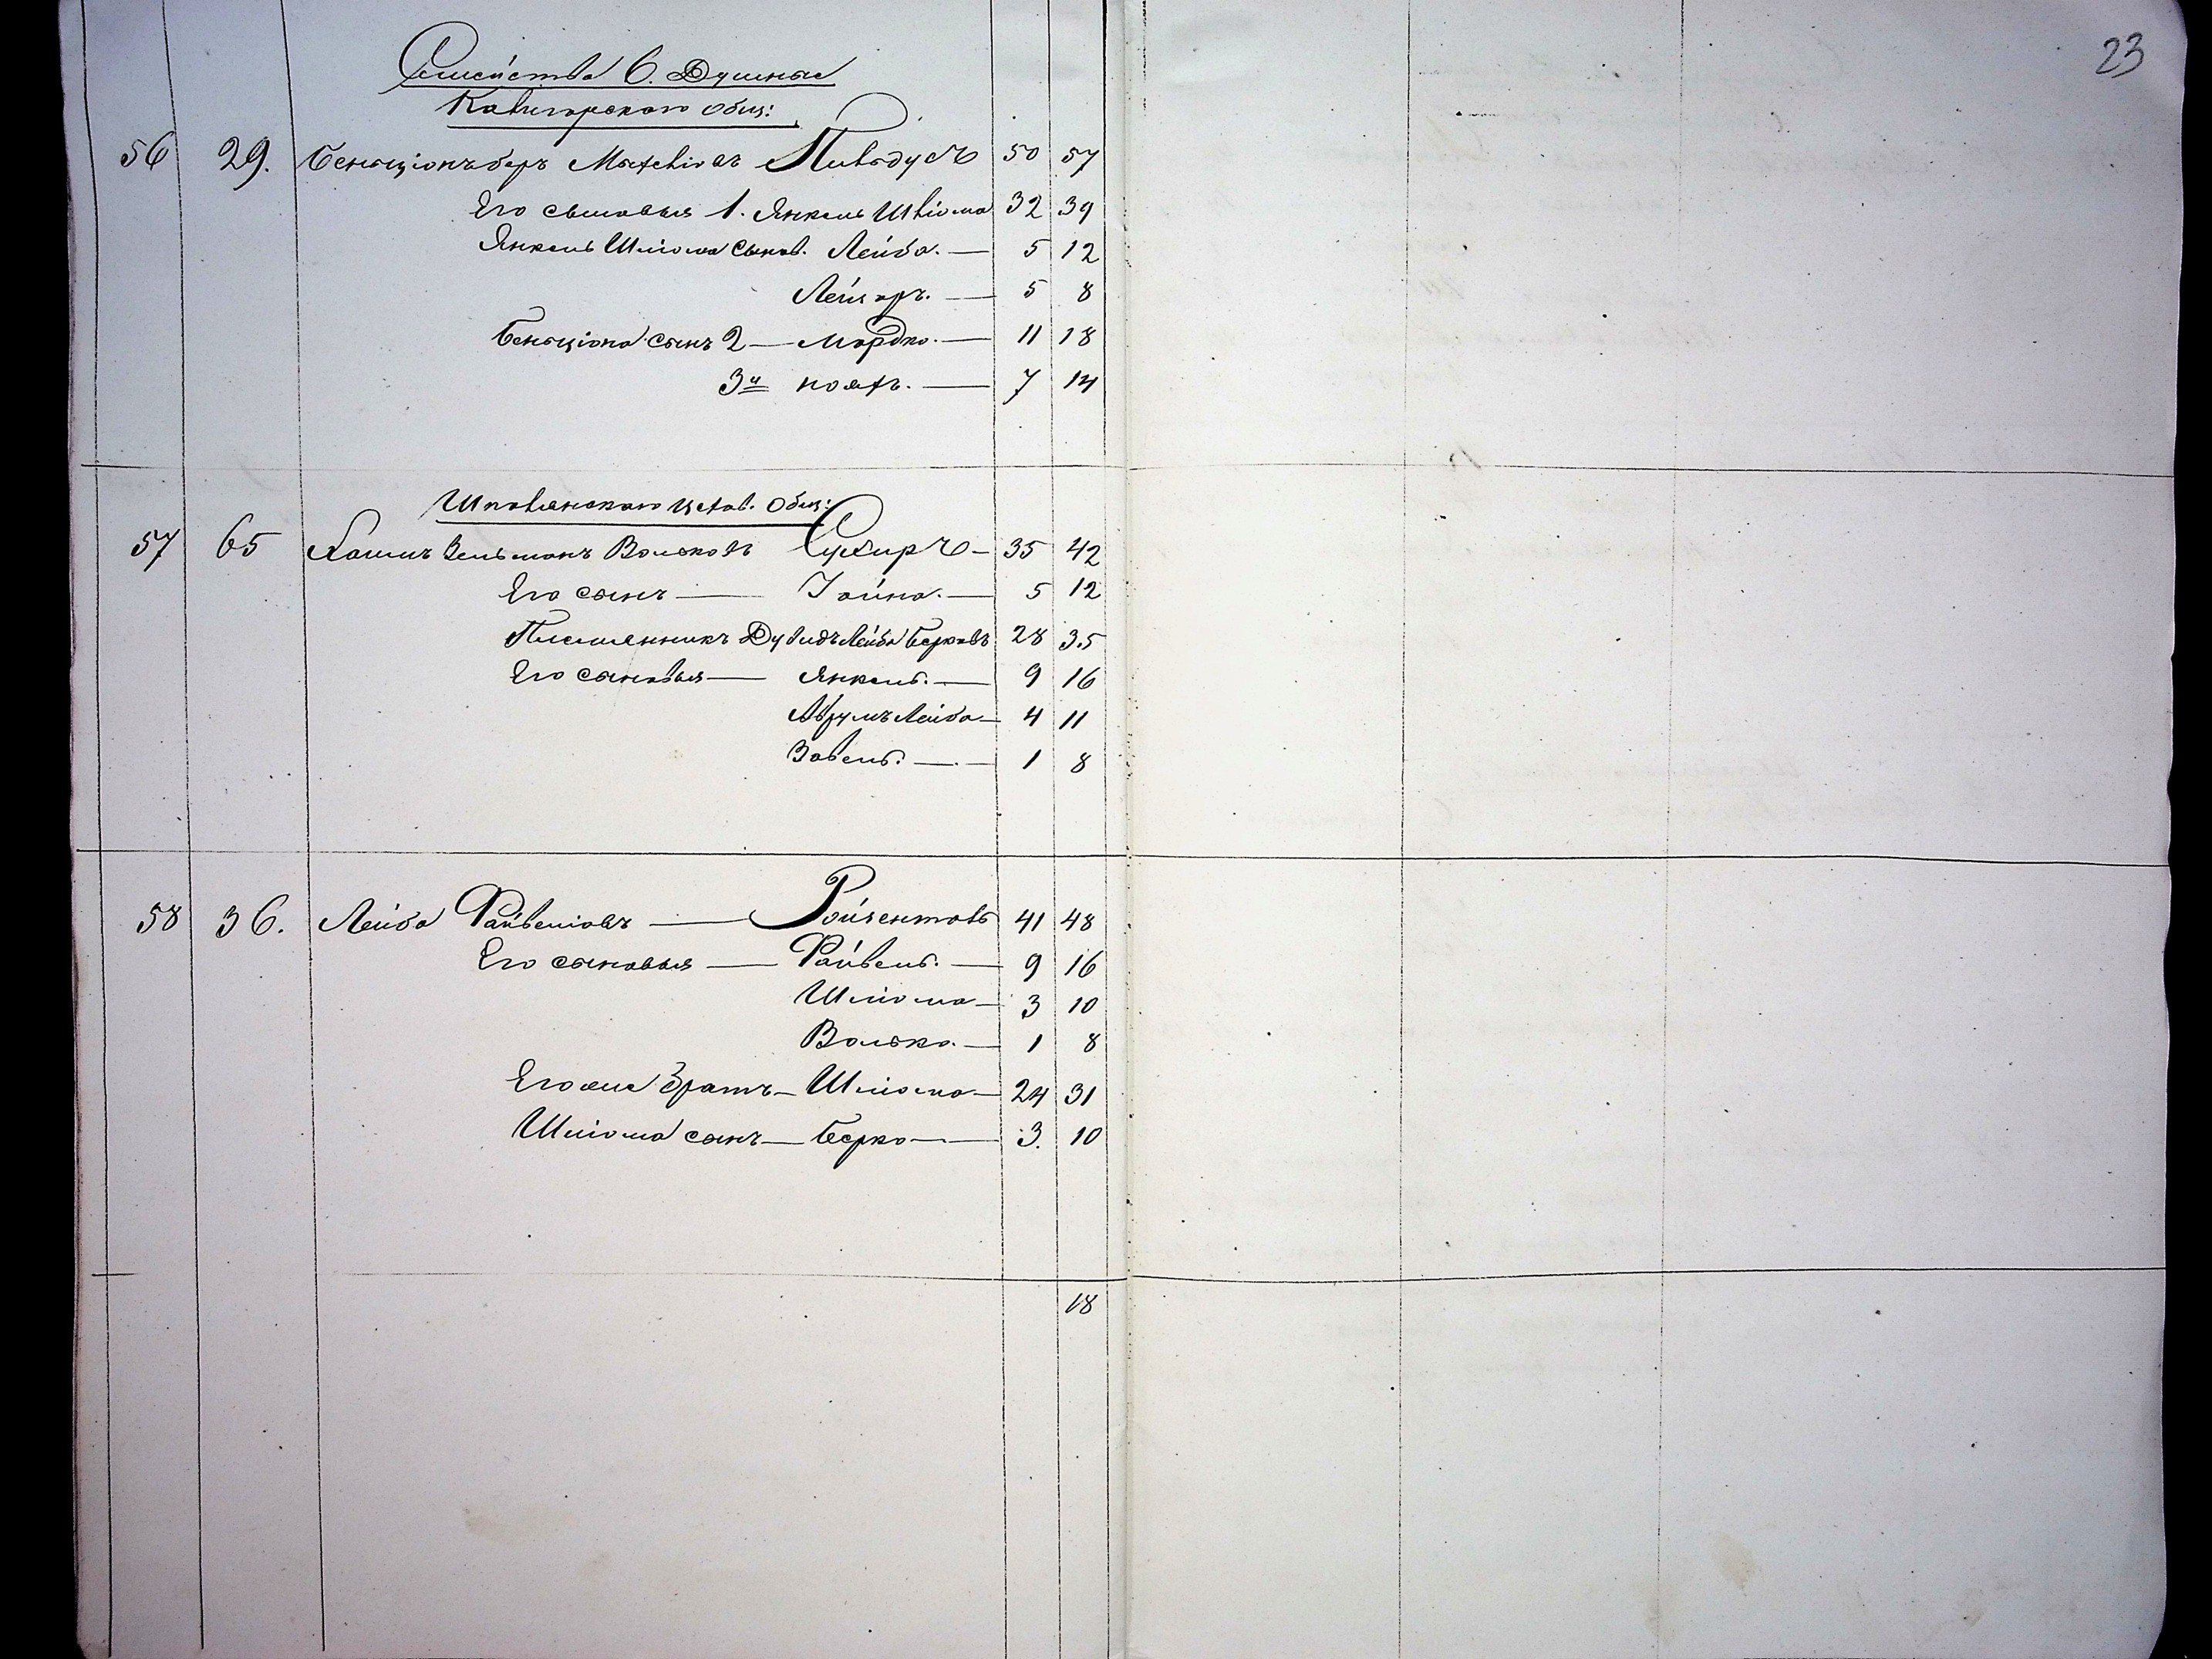 23
Семейства 6. Душныя
Кавигорскаго Общ:
56 29. Беньціонъ беръ Мате вовъ Пивадусъ 50 57
Его сыновья 1. Янкель Шліома 32 39
Янкель Шліома Сынов. Лейба. — 5 12
Лейзеръ. — 5 8
Беньціона сынъ 2 — Мордко. — 11 18
3й ноятъ. — 7 14
Шковленскаго Общ:
57 65 Хаимъ Зельманъ Вольковъ Сухиръ — 35 42
Его сынъ — Іойна. — 5 12
Племянникъ Дувидъ Лейба Берковъ 28 35
Его сыновья — Янкель. — 9 16
Аврумъ Лейба — 4 11
Завель. — 1 8
58 36. Лейба Файвеліовъ — Ройзентовъ 41 48
Его сыновья — Файвель. — 9 16
Шліома — 3 10
Волько. — 1 8
Его же Братъ — Шліома — 24 31
Шліома сынъ — Берко — 3. 10
18